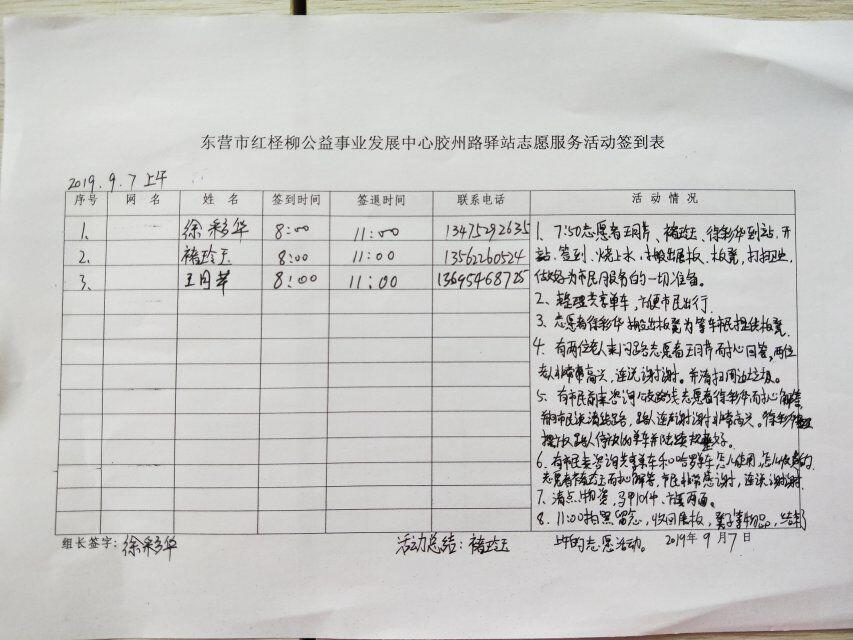 东营市红柽柳公益事业发展中心胶州路驿站志愿服务活动签到表
2019.9.7上午
序号 网 名 姓 名 签到时间 签退时间 联系电话 活 动 情 况
1、 徐彩华 8:00 11:00 13475292635
2、 褚玲玉 8:00 11:00 13562260524
3、 8:00 11:00
1、7:50志愿者 、褚玲玉、徐彩华到站,开
站、签到、烧上水、搬出展板、板凳,打扫卫生,
做好为市民服务的一切准备。
2、整理共享单车,方便市民出行。
3、志愿者徐彩华搬出板凳为等车市民提供板凳。
4、有两位老人来问路志愿者 耐心回答,两位
老人非常高兴,连说谢谢。并清扫周边垃圾。
5、有市民前来咨询公交路线志愿者徐彩华耐心解答
路人连声谢谢非常高兴。徐彩华
路人停放的单车并陆续 好。
6、有市民来咨询共享单车和哈罗单车怎么使用,怎么收费的
志愿者褚玲玉耐心解答,市民非常感谢,连说谢谢。
7、清点物资,马甲10件、 旗两面。
8、11:00拍照留念,收回展板,凳子等物品,结束
上午的志愿活动。 2019年9月7日
组长签字:徐彩华 活动总结:褚玲玉